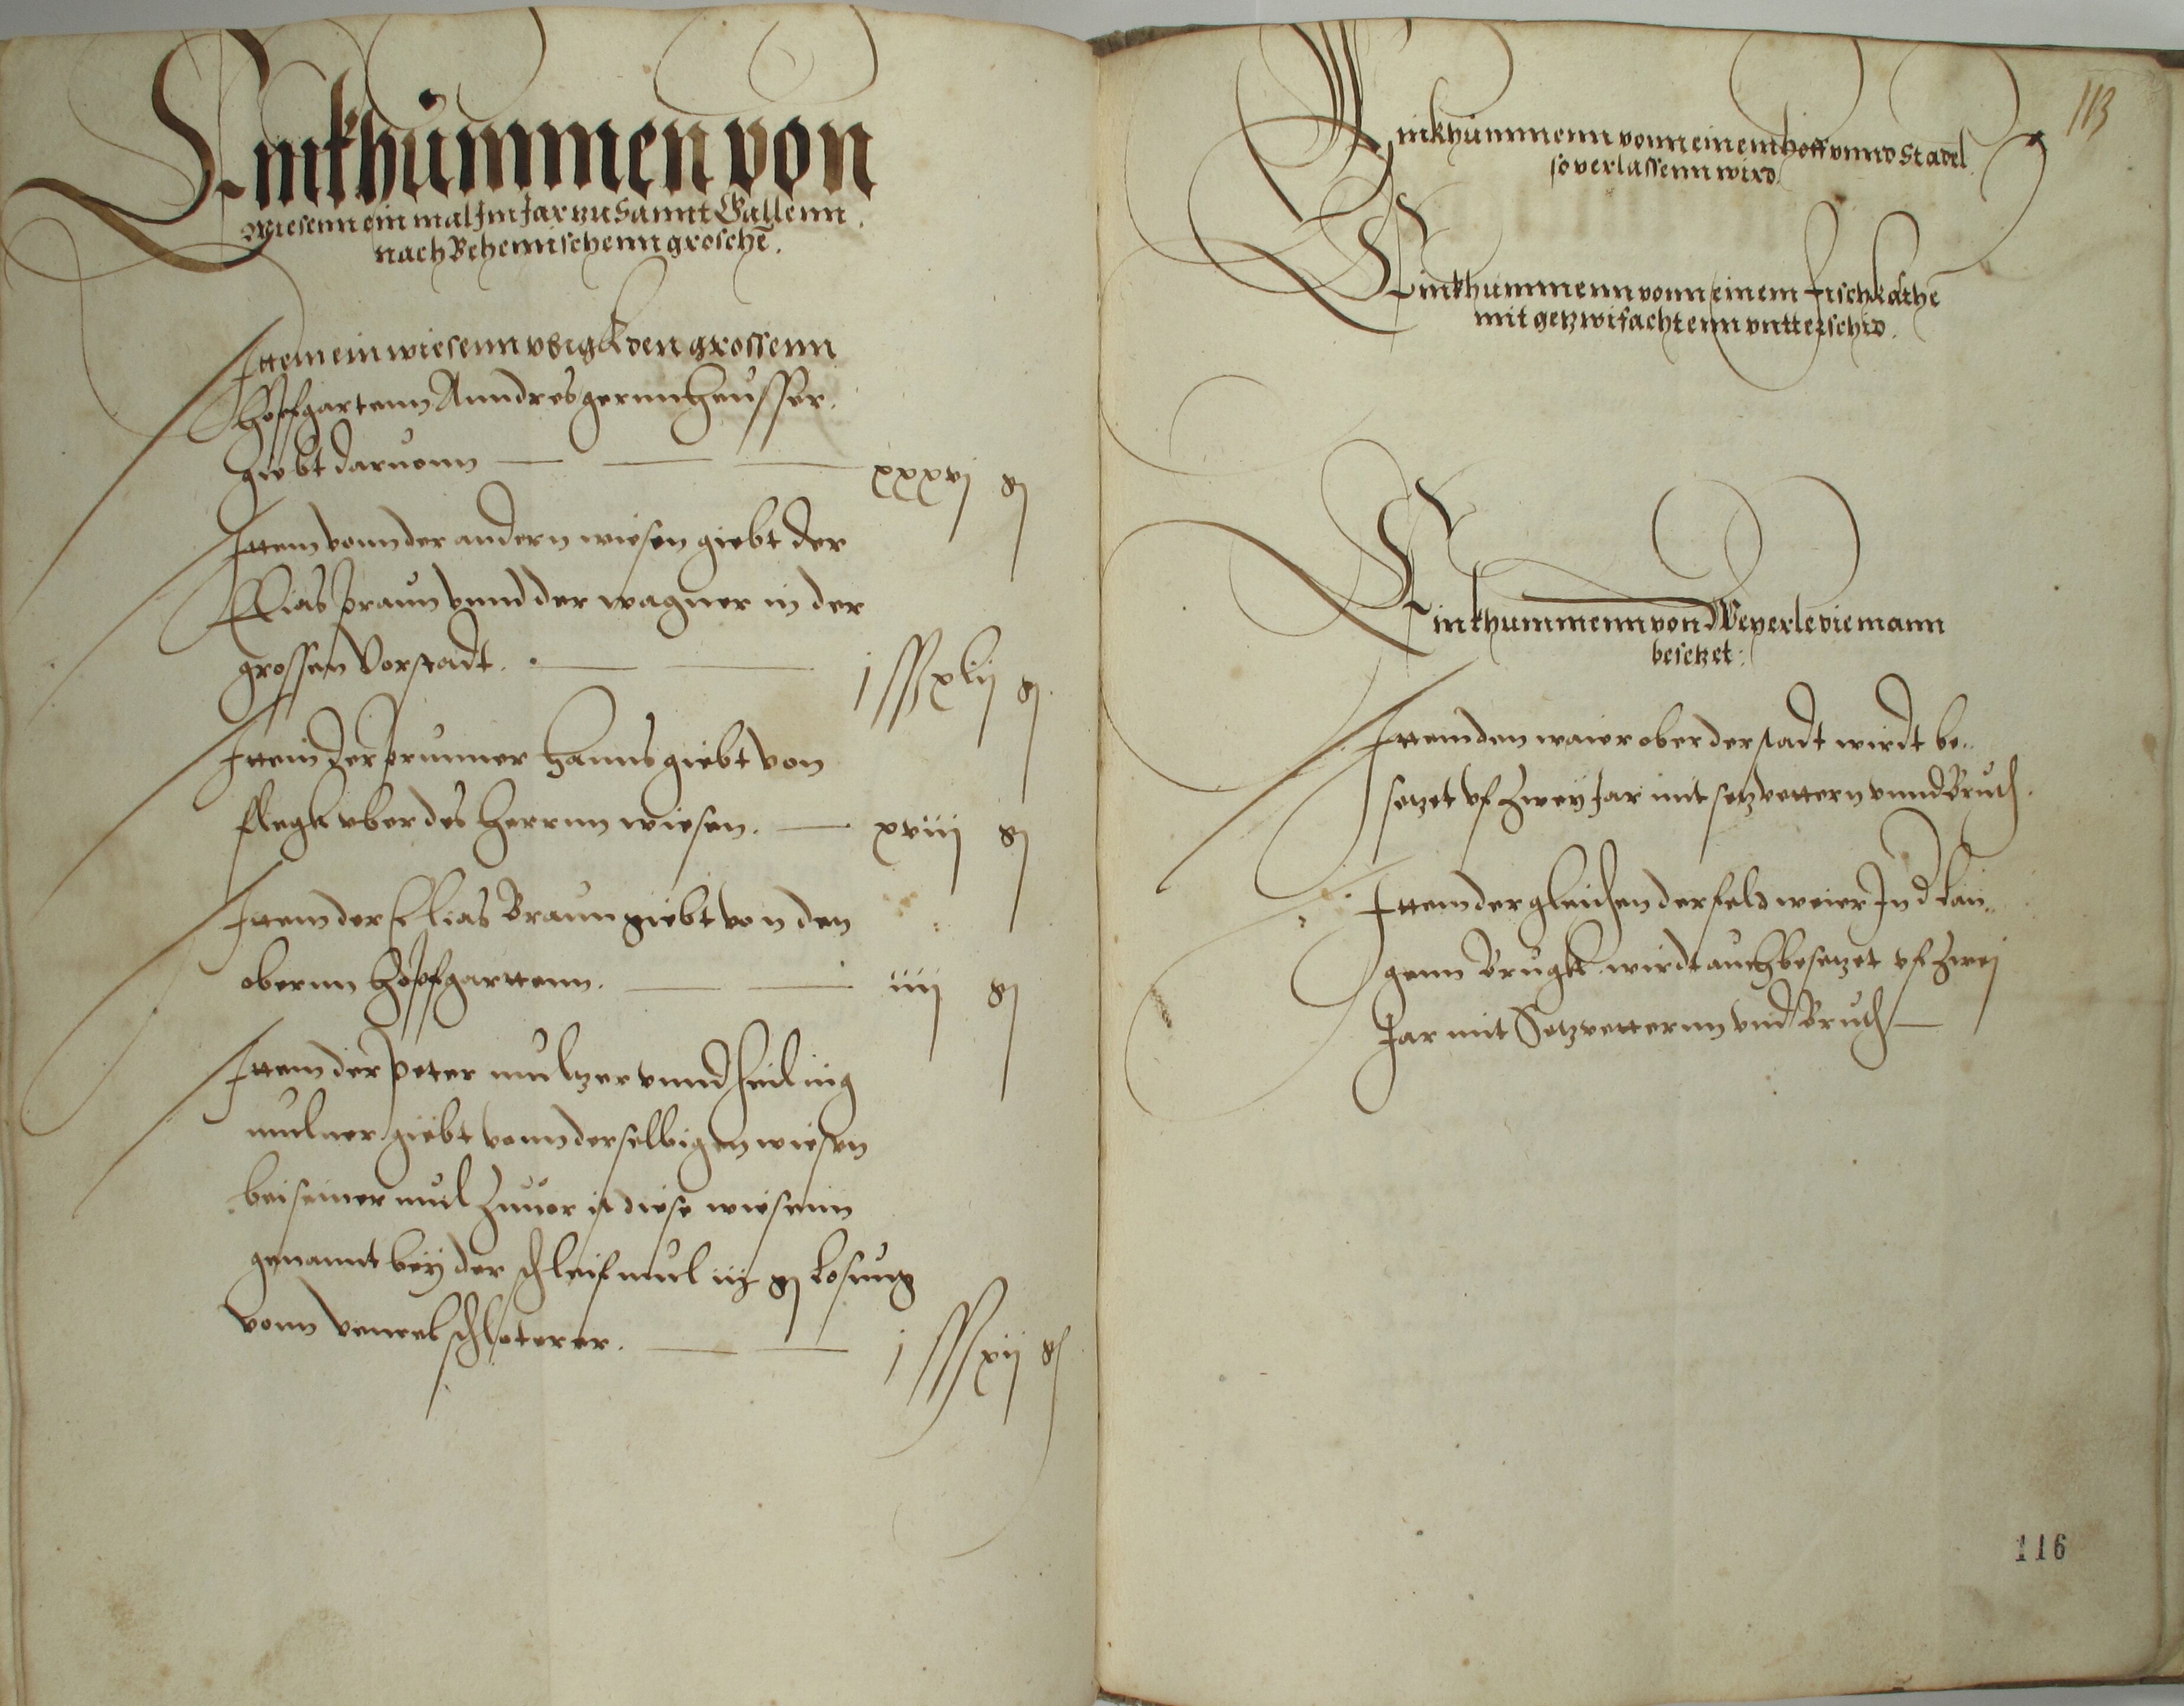 Einkhummen von
wiesenn ein mal Im Jar zu Sannt Gallenn.
nach Behemischenn grosche.
Ittem ein wiesenn den grossenn
Hopffgartenn Anndres gernnheusser
giebt daruonn xxxvj gl
Ittem vonn der andern wiesen giebt der
Elias praun vnnd der wagner in der
grossen Vorstadt. j ßß xlij gl.
Ittem Der prunner Hanns giebt von
flegk vber des Herrnn wiesen. xviij gl
Ittem der Elias Braun giebt von den
obernn Hopffgarttenn. iiij gl
Ittem der peter mulzer vnnd
mulner giebt vonn derselbigen wiesen
bei seiner mul Zuuor ist diese wiesenn
genannt bey der schleifmul iij gl Losung
vonn schloterer. j ßß xij gl
113
Einkhummenn vonn einem hoff vnnd Stadel
so verlassenn wird.
Einkhummenn vonn einem Fischkasthe
mit gezwifachtenn vntterschid.
Einkhummenn von Weyerle die mann
besetzet:
Ittem den waier ober der stadt wirdt be..
setzet vf Zwey Jar mit setzvettern vnnd Bruth.
Ittem der gleichen der feld weier In d lan..
genn Brugkh wirdt auch besetzet vf Zwej
Jar mit Setzvetternn vnd Bruth
116